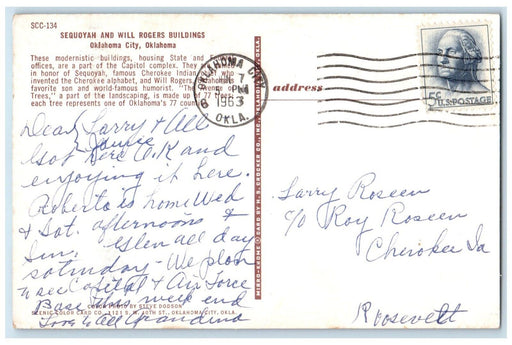 SCC-134
SEQUOYAH AND WILL ROGERS BUILDINGS
Oklahoma City, Oklahoma
These modernistic buildings, housing State and
offices, are a part of the Capitol complex. They are
in honor of Sequoyah, famous Cherokee Indian who in-
vented the Cherokee alphabet, and Will Rogers,
favorite son and world-famous humorist. "The
Trees," a part of the landscaping, is made up of 77 trees,
each tree represents one of Oklahoma's 77 counties.
OKLAHOMA CITY
7
PM
1963
OKLA.
address
5¢
U.S.POSTAGE
Dear Larry & All
Got here O.K and
enjoying it here.
Roberta is home Wed
& Sat. afternoons &
Sun. Glen all day
saturday - We plan
to see Capitol & Air Force
Base this week end
Love to All Grandma
Larry Roseen
c/o Roy Roseen
Cherokee Ia
Roosevelt
MIRRO-KROME ® CARD BY H. S. CROCKER CO., INC.
COLOR PHOTO BY STEVE DODSON
SCENIC COLOR CARD CO., 1121 S. W. 40TH ST., OKLAHOMA CITY, OKLA.